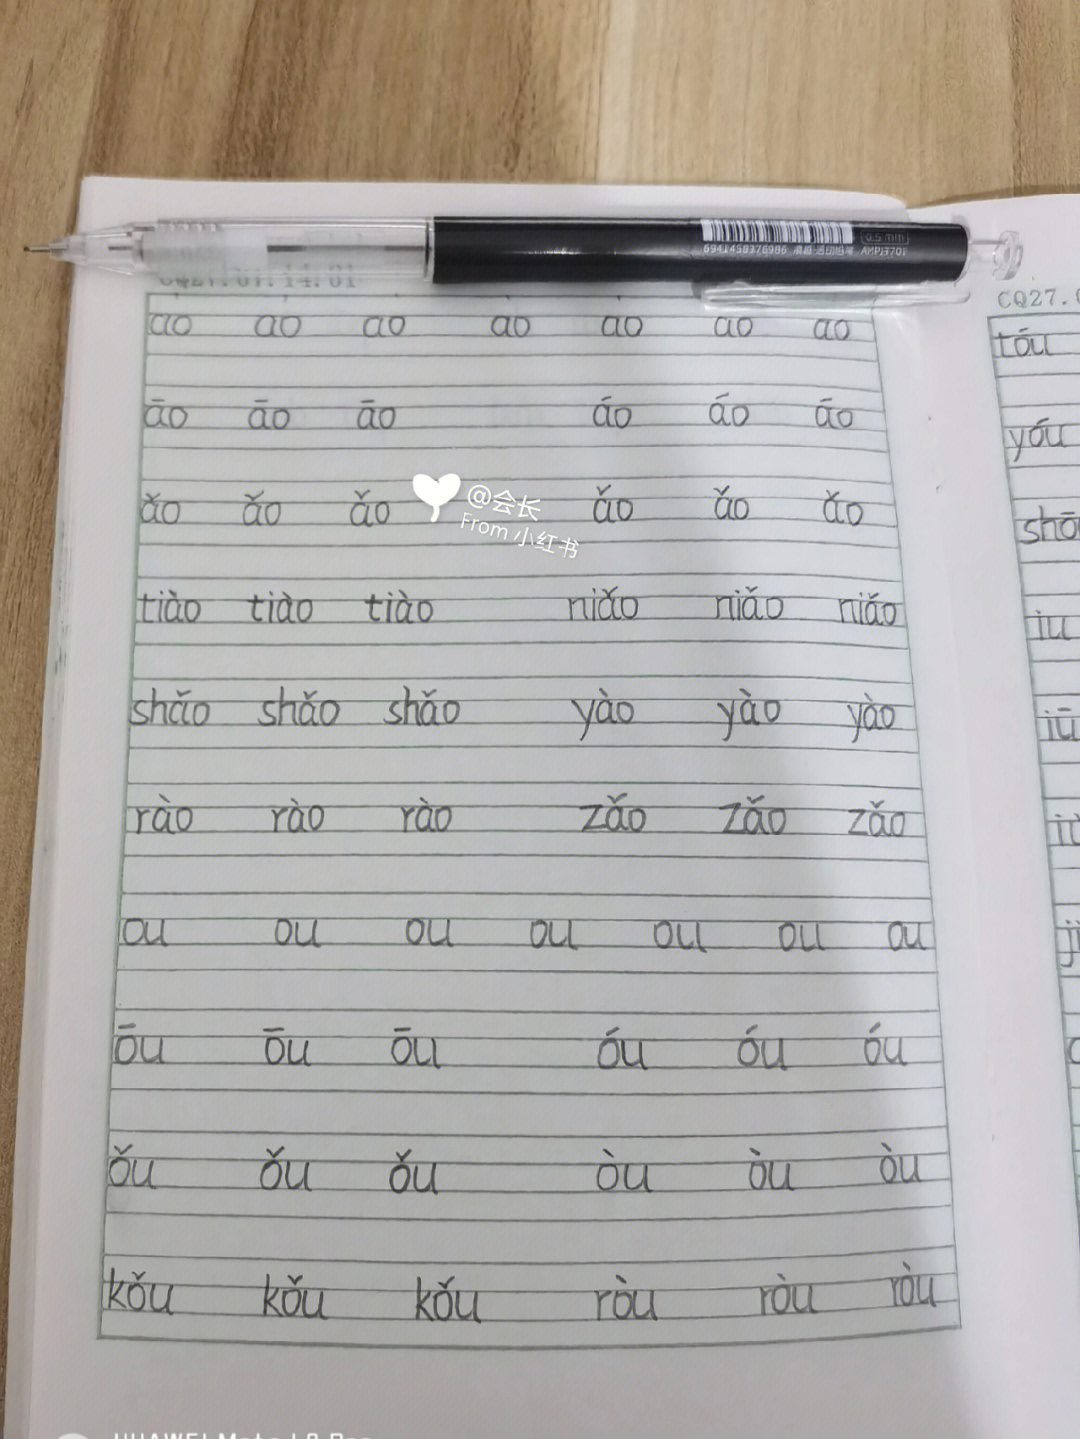 6941458376986
0.5mm
AMPJ3701
CQ27.07.14.01
ao ao ao ao ao ao ao
āo āo āo áo áo āo
ǎo ǎo ǎo ǎo ǎo ǎo
@会长
From 小红书
tiào tiào tiào niǎo niǎo niǎo
shǎo shǎo shǎo yào yào yào
rào rào rào zǎo zǎo zǎo
ou ou ou ou ou ou ou
ōu ōu ōu óu óu óu
ǒu ǒu ǒu òu òu òu
kǒu kǒu kǒu ròu ròu ròu
CQ27.
tóu
yóu
shō
iu
iū